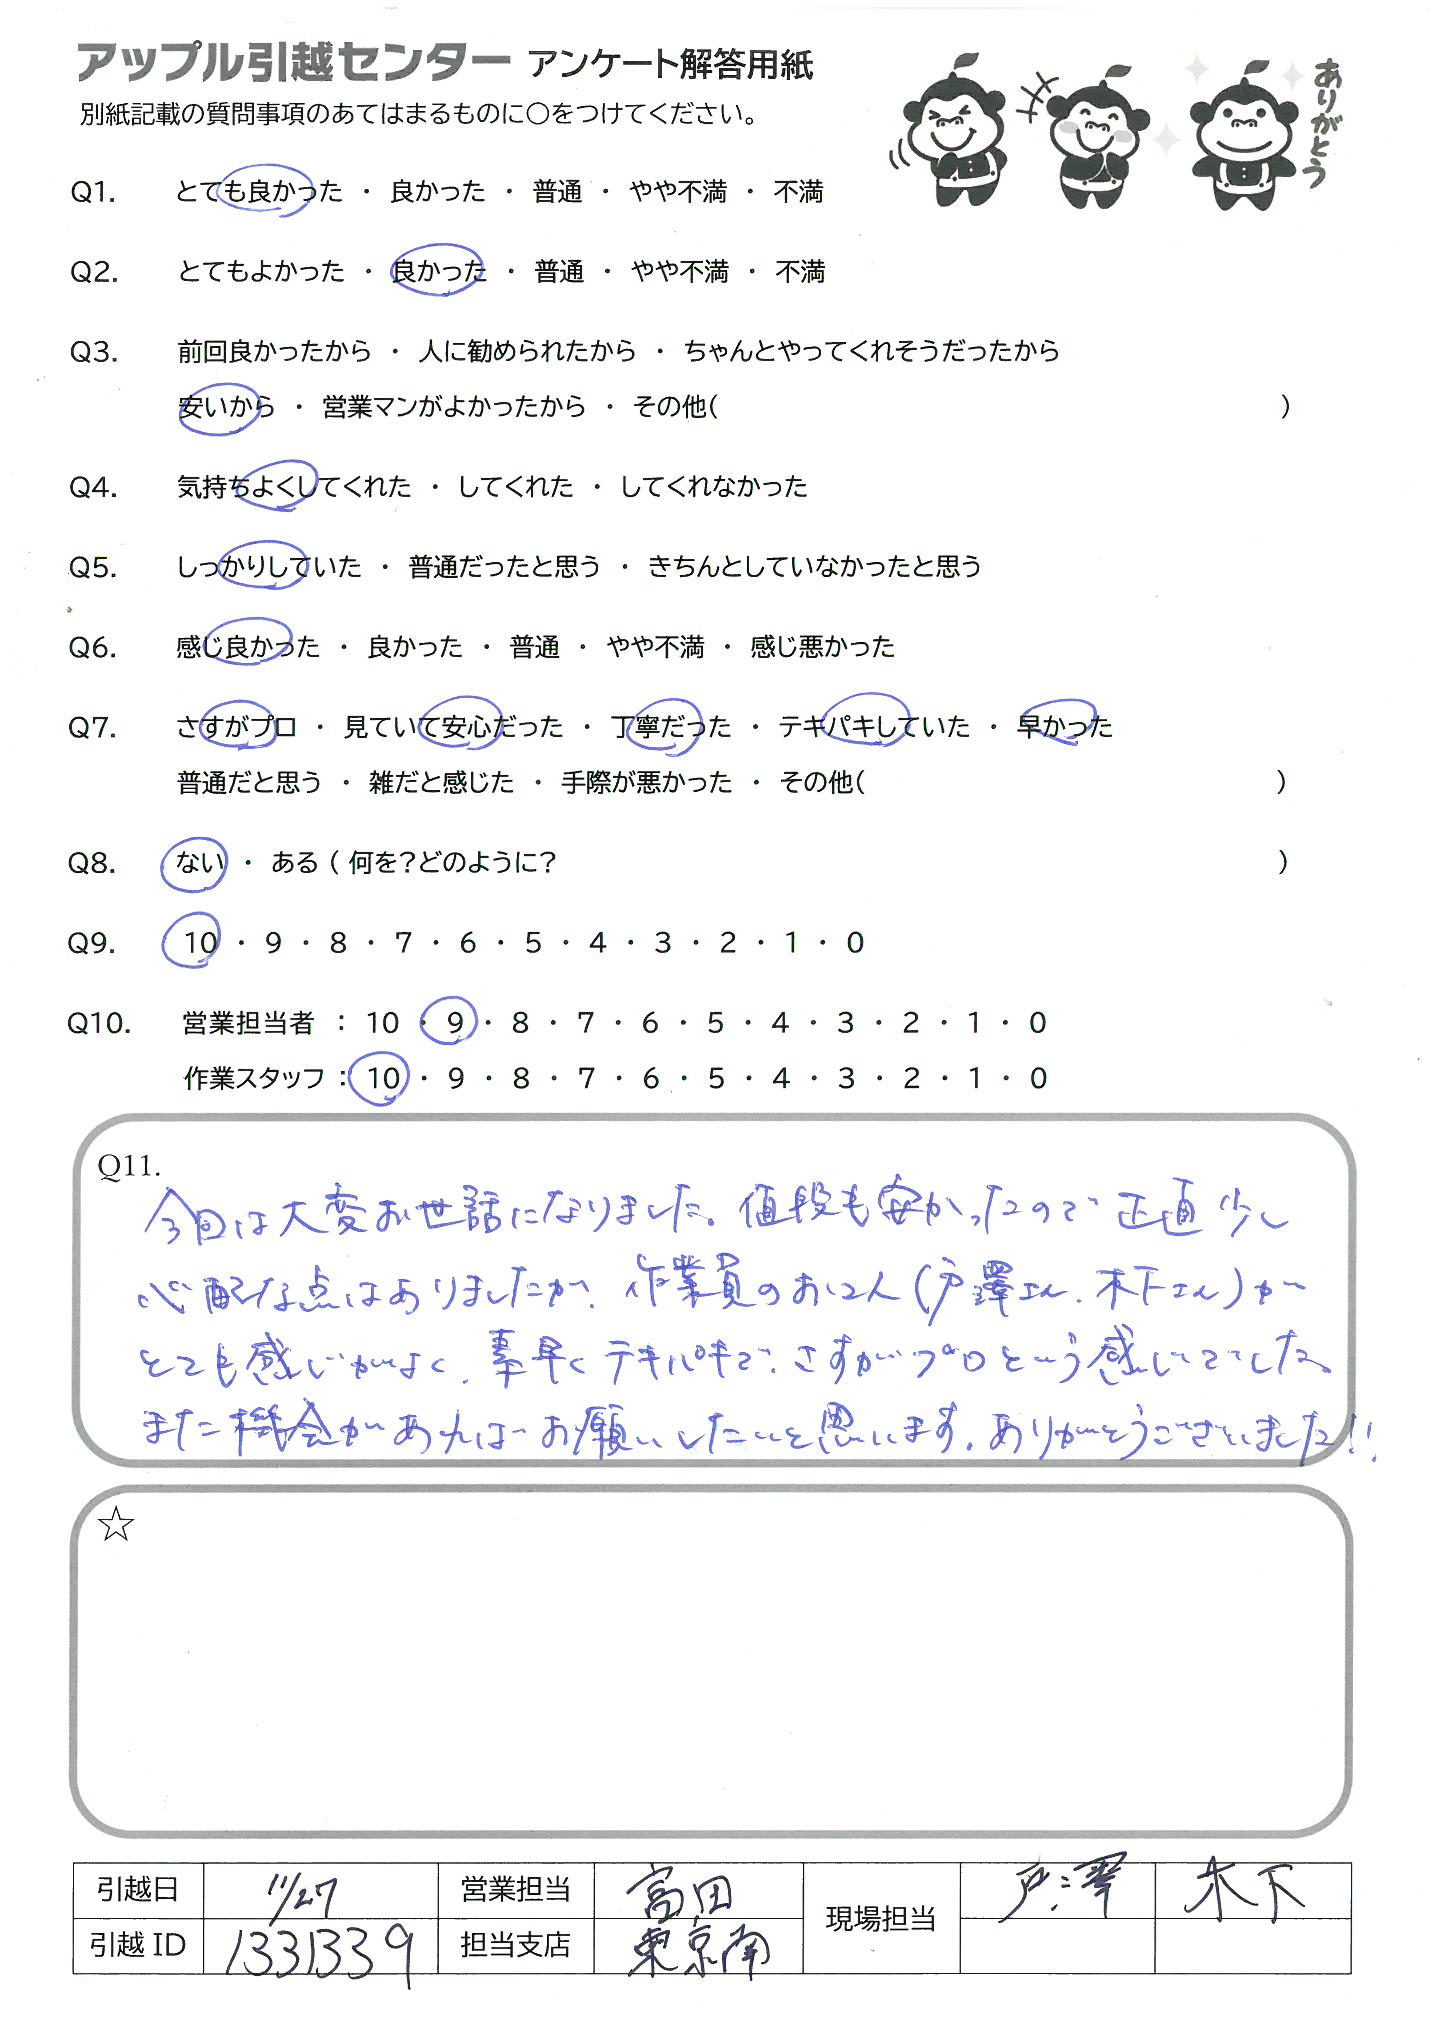 アップル引越センター アンケート解答用紙
別紙記載の質問事項のあてはまるものに○をつけてください。
ありがとう
Q1. とても良かった ・ 良かった ・ 普通 ・ やや不満 ・ 不満
Q2. とてもよかった ・ 良かった ・ 普通 ・ やや不満 ・ 不満
Q3. 前回良かったから ・ 人に勧められたから ・ ちゃんとやってくれそうだったから
安いから ・ 営業マンがよかったから ・ その他( )
Q4. 気持ちよくしてくれた ・ してくれた ・ してくれなかった
Q5. しっかりしていた ・ 普通だったと思う ・ きちんとしていなかったと思う
Q6. 感じ良かった ・ 良かった ・ 普通 ・ やや不満 ・ 感じ悪かった
Q7. さすがプロ ・ 見ていて安心だった ・ 丁寧だった ・ テキパキしていた ・ 早かった
普通だと思う ・ 雑だと感じた ・ 手際が悪かった ・ その他( )
Q8. ない ・ ある ( 何を？どのように？ )
Q9. 10 ・ 9 ・ 8 ・ 7 ・ 6 ・ 5 ・ 4 ・ 3 ・ 2 ・ 1 ・ 0
Q10. 営業担当者 ： 10 ・ 9 ・ 8 ・ 7 ・ 6 ・ 5 ・ 4 ・ 3 ・ 2 ・ 1 ・ 0
作業スタッフ ： 10 ・ 9 ・ 8 ・ 7 ・ 6 ・ 5 ・ 4 ・ 3 ・ 2 ・ 1 ・ 0
Q11.
今回は大変お世話になりました。値段も安かったので正直少し
心配な点はありましたが、作業員のお2人（戸澤さん、木下さん）が
とても感じがよく、素早くテキパキで、さすがプロという感じでした。
また機会があればお願いしたいと思います。ありがとうございました!!
☆
引越日 11/27 営業担当 富田 現場担当 戸澤 木下
引越 ID 1331339 担当支店 東京南